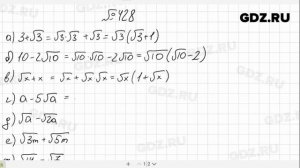 GDZ.RU
№428
а) 3+√3 = √3·√3 + √3 = √3(√3+1)
б) 10-2√10 = √10 √10 - 2√10 = √10(√10-2)
в) √x+x = √x + √x √x = √x(1+√x)
г) a-5√a =
д) √a - √2a
е) √3m + √5m
GDZ.RU